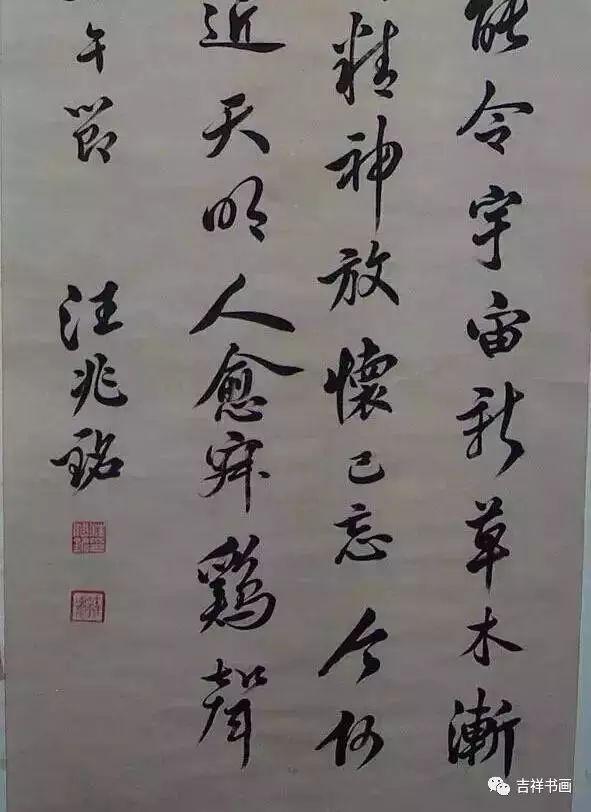 能令宇宙新草木漸
精神放懷已忘今何
近天明人愈寂鷄聲
午節
汪兆銘
吉祥书画